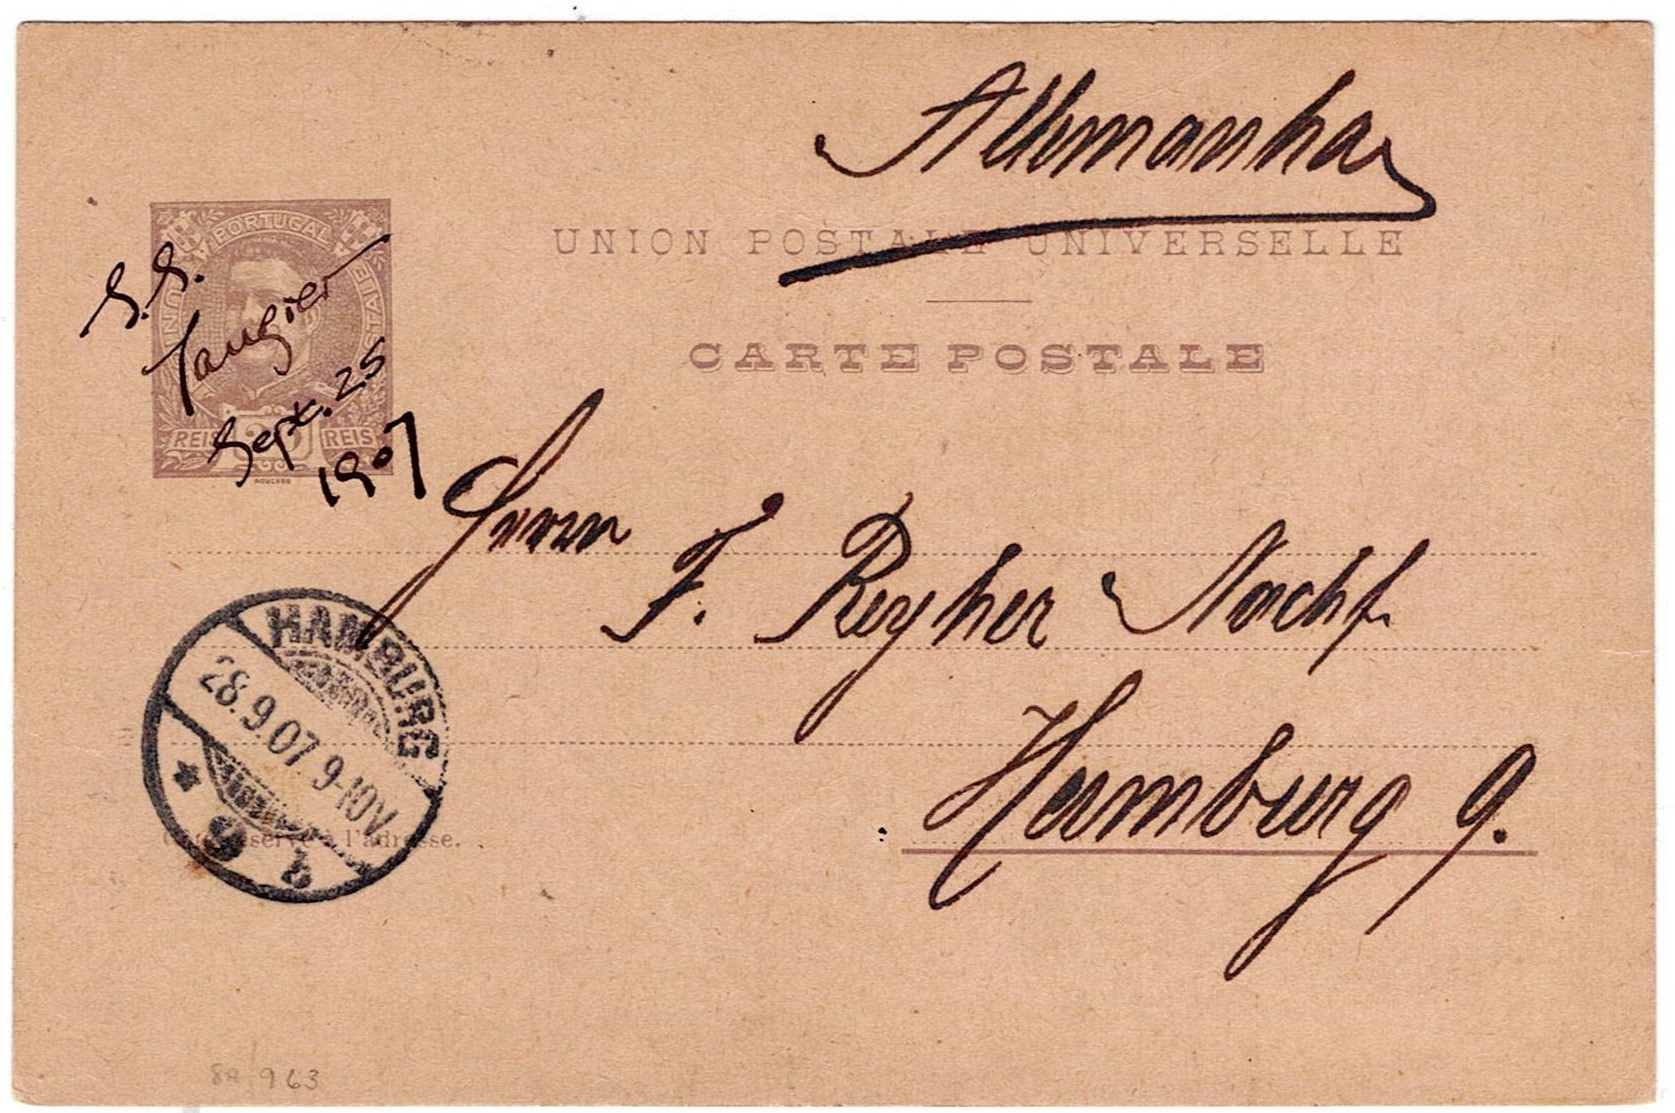 Allemanha
PORTUGAL
UNION POSTALE UNIVERSELLE
CARTE POSTALE
S.S.
Tangier
Sept. 25
1907
REIS 25 REIS
MOUCHON
Herrn
F. Reyher Nachf
Hamburg 9.
HAMBURG
28.9.07 9-10V
* 9 b
Côté réservé à l'adresse.
963